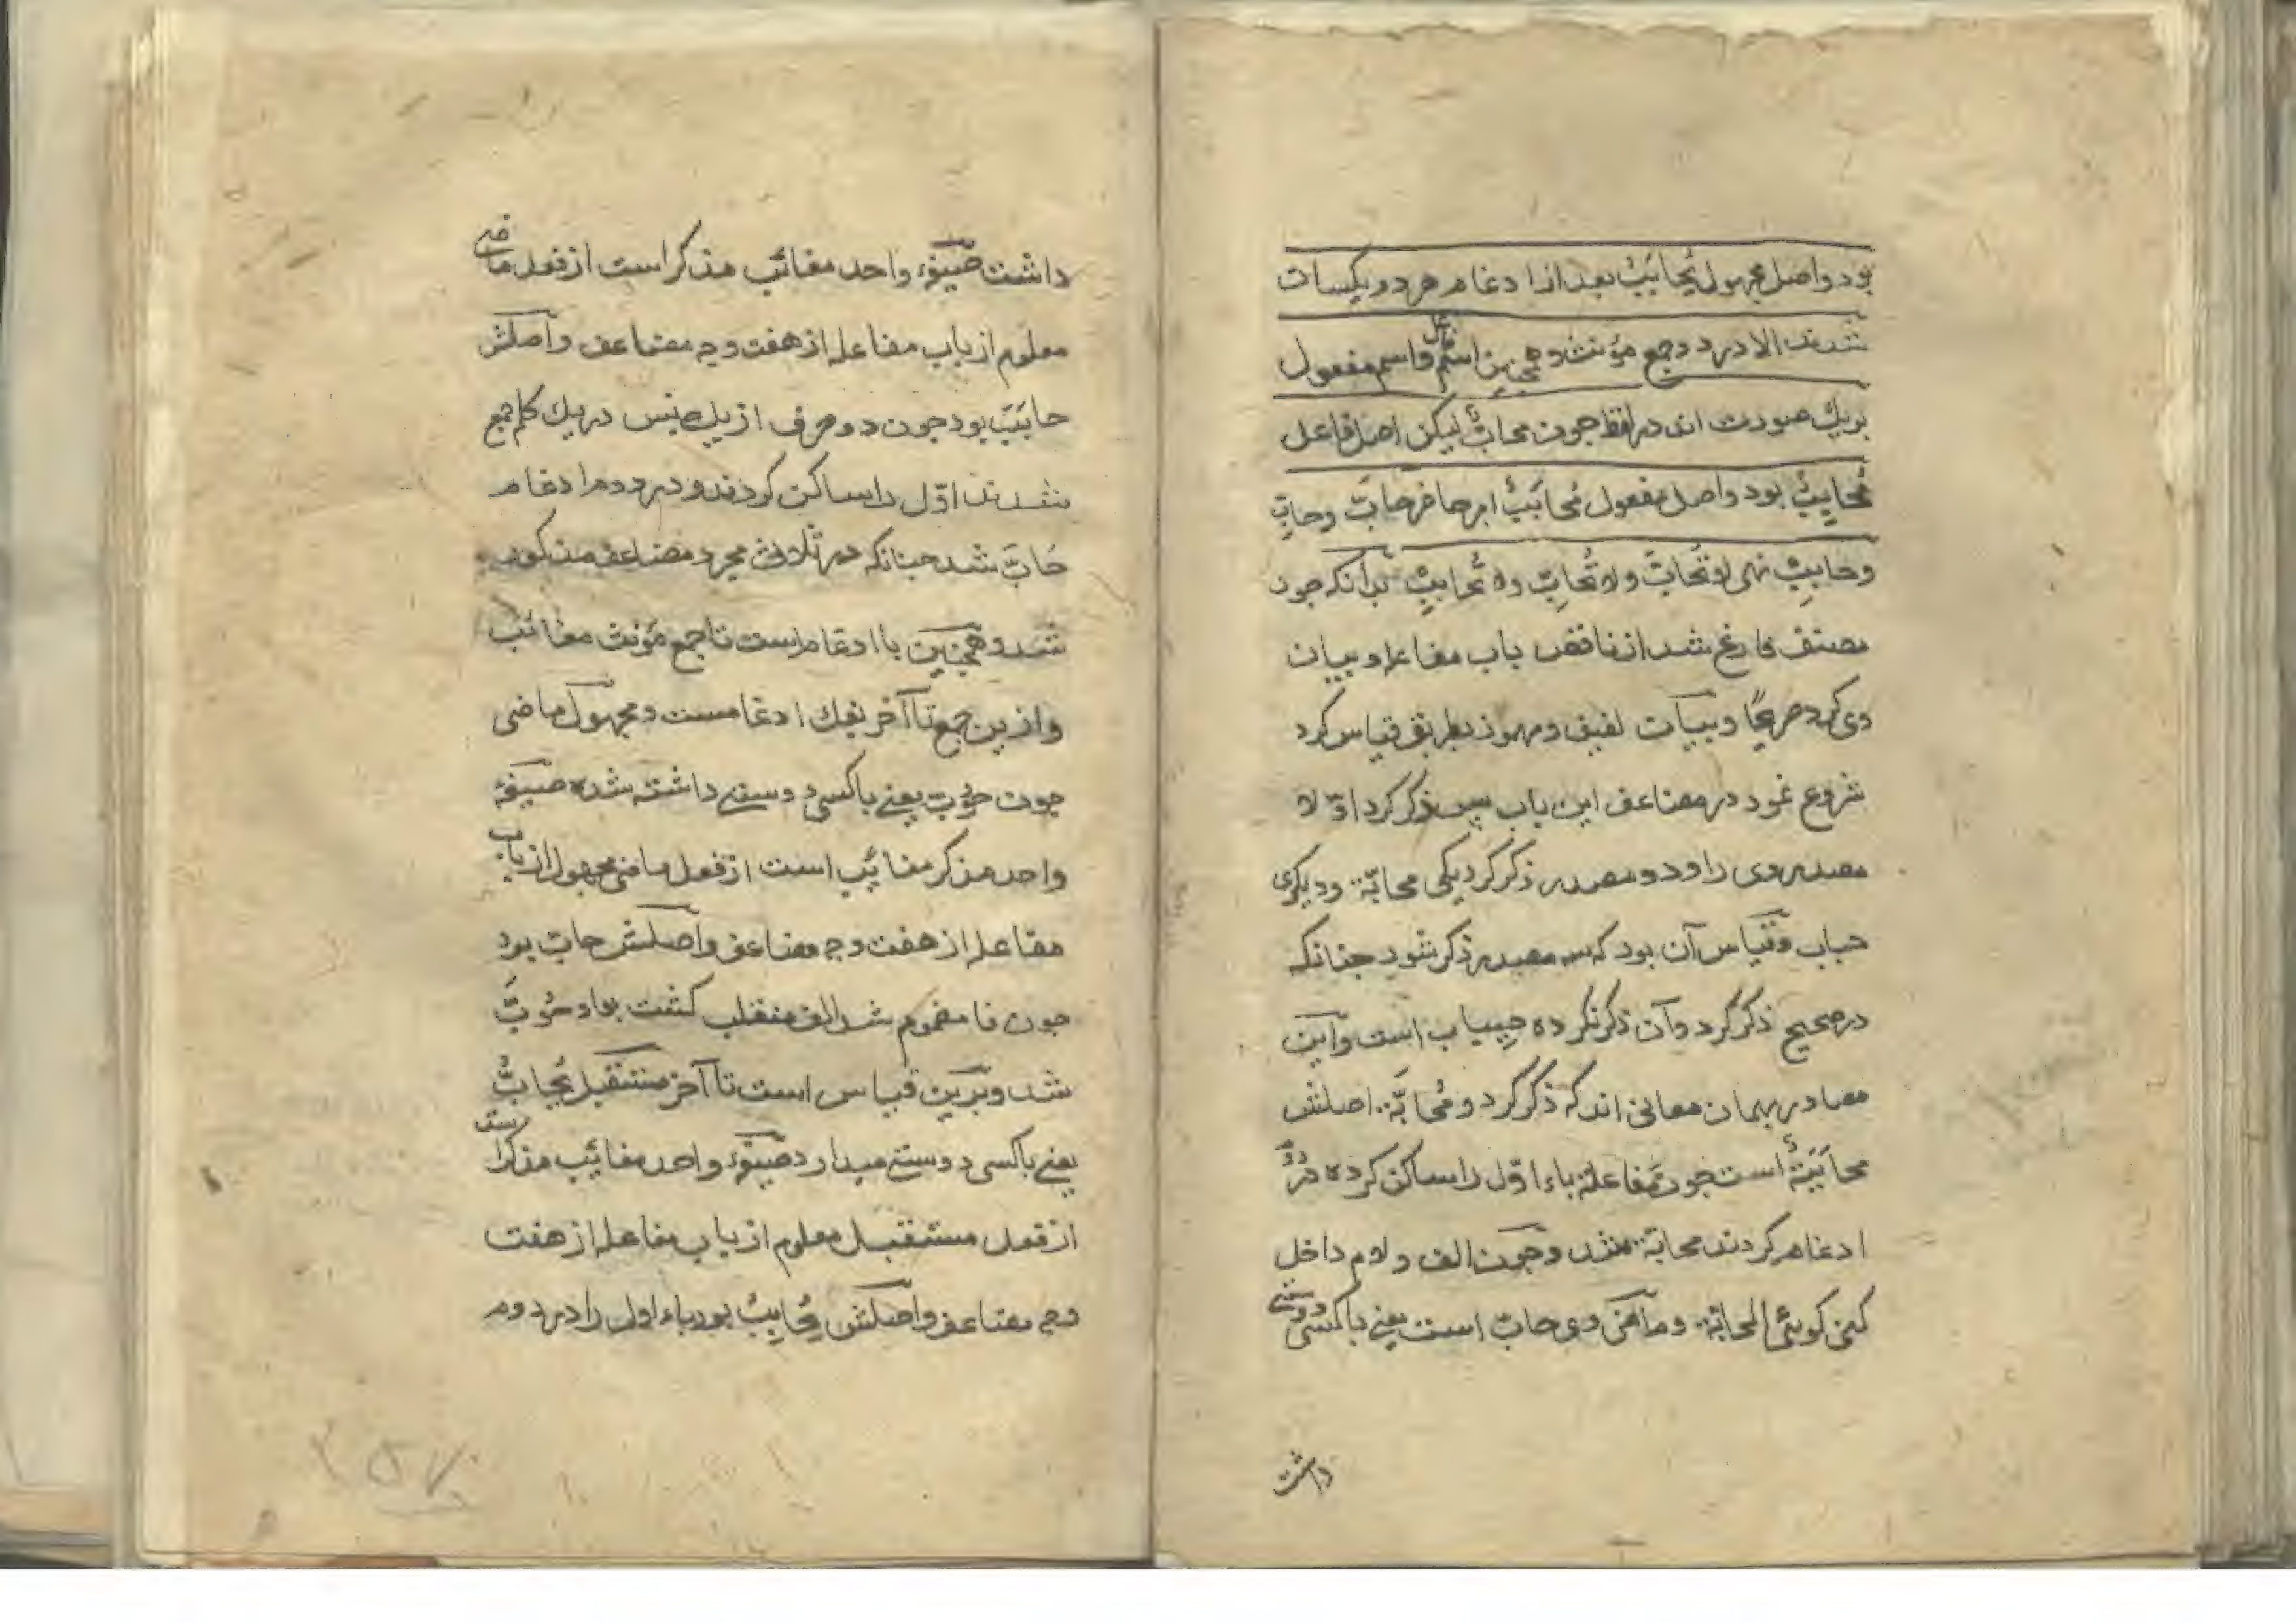 بود واصل مجهول یُحابَبُ بعد از ادغام هر دو یکسان
شدند الا در دو جمع مؤنث و همچنین اسم فاعل واسم مفعول
بریك صورت اند در لفظ جون محابٌّ لیکن اصل فاعل
مُحابِبٌ بود واصل مفعول مُحابَبٌ امر حاضر حابَّ وحابِّ
وحابِبْ نهی لا تُحابَّ ولا تُحابِّ ولا تُحابِبْ بدآنکه جون
مصنف فارغ شد از ناقص باب مفاعله وبیان
وی کرد صریحًا وبیان لفیف ومهموز بطریق قیاس کرد
شروع نمود در مضاعف این باب پس ذکر کرد اوّلا
مصدر وی را ودو مصدر ذکر کرد یکی محابّة ودیکری
حباب وقیاس آن بود که سه مصدر ذکر شود جنانکه
در صحیح ذکر کرد وآن ذکر نکرده حِیباب است واین
مصادر بهمان معانی اند که ذکر کرد ومُحابَّة اصلش
محابَبَةٌ است جون مُفاعلة باء اوّل را ساکن کرده در دُوم
ادغام کردند محابّة شد وجون الف ولام داخل
کنی کویئ المحابّة وماضی وی حابّ است یعنی باکسی دوستی
داشت
داشت صیغهٔ واحد مغائب مذکر است از فعل ماضی
معلوم از باب مفاعله از هفت وجه مضاعف واصلش
حابَبَ بود جون دو حرف از یك جنس در یك کلمه جمع
شدند اوّل را ساکن کردند ودر دوم ادغام
حَابَّ شد جنانکه در ثلاثی مجرد مضاعف مذکور
شد وهمچنین با ادغام است تا جمع مؤنث مغائب
وازین جمع تا آخر بفك ادغامست ومجهول ماضی
جون حوبّ یعنی باکسی دوستی داشته شده صیغهٔ
واحد مذکر مغائب است از فعل ماضی مجهول از باب
مفاعله از هفت وجه مضاعف واصلش حابّ بود
جون فا مضموم شد الف منقلب کشت بواو حُوبَّ
شد وبرین قیاس است تا آخر مستقبل یُحابُّ
یعنی باکسی دوستی میدارد صیغهٔ واحد مغائب مذکر است
از فعل مستقبل معلوم از باب مفاعله از هفت
وجه مضاعف واصلش یُحابِبُ بود باء اول را در دوم